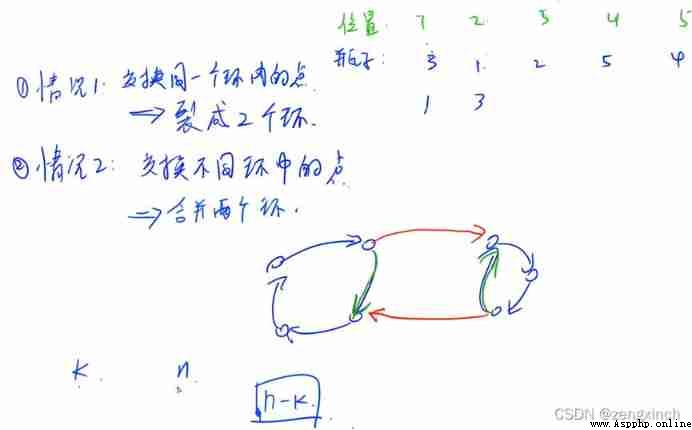 位置: 1 2 3 4 5
瓶子: 3 1 2 5 4
1 3
① 情况1: 交换同一个环内的点
⇒ 裂成2个环.
② 情况2: 交换不同环中的点
⇒ 合并两个环.
k. n.
n-k.
CSDN @zengxinch
www.Aspphp.online